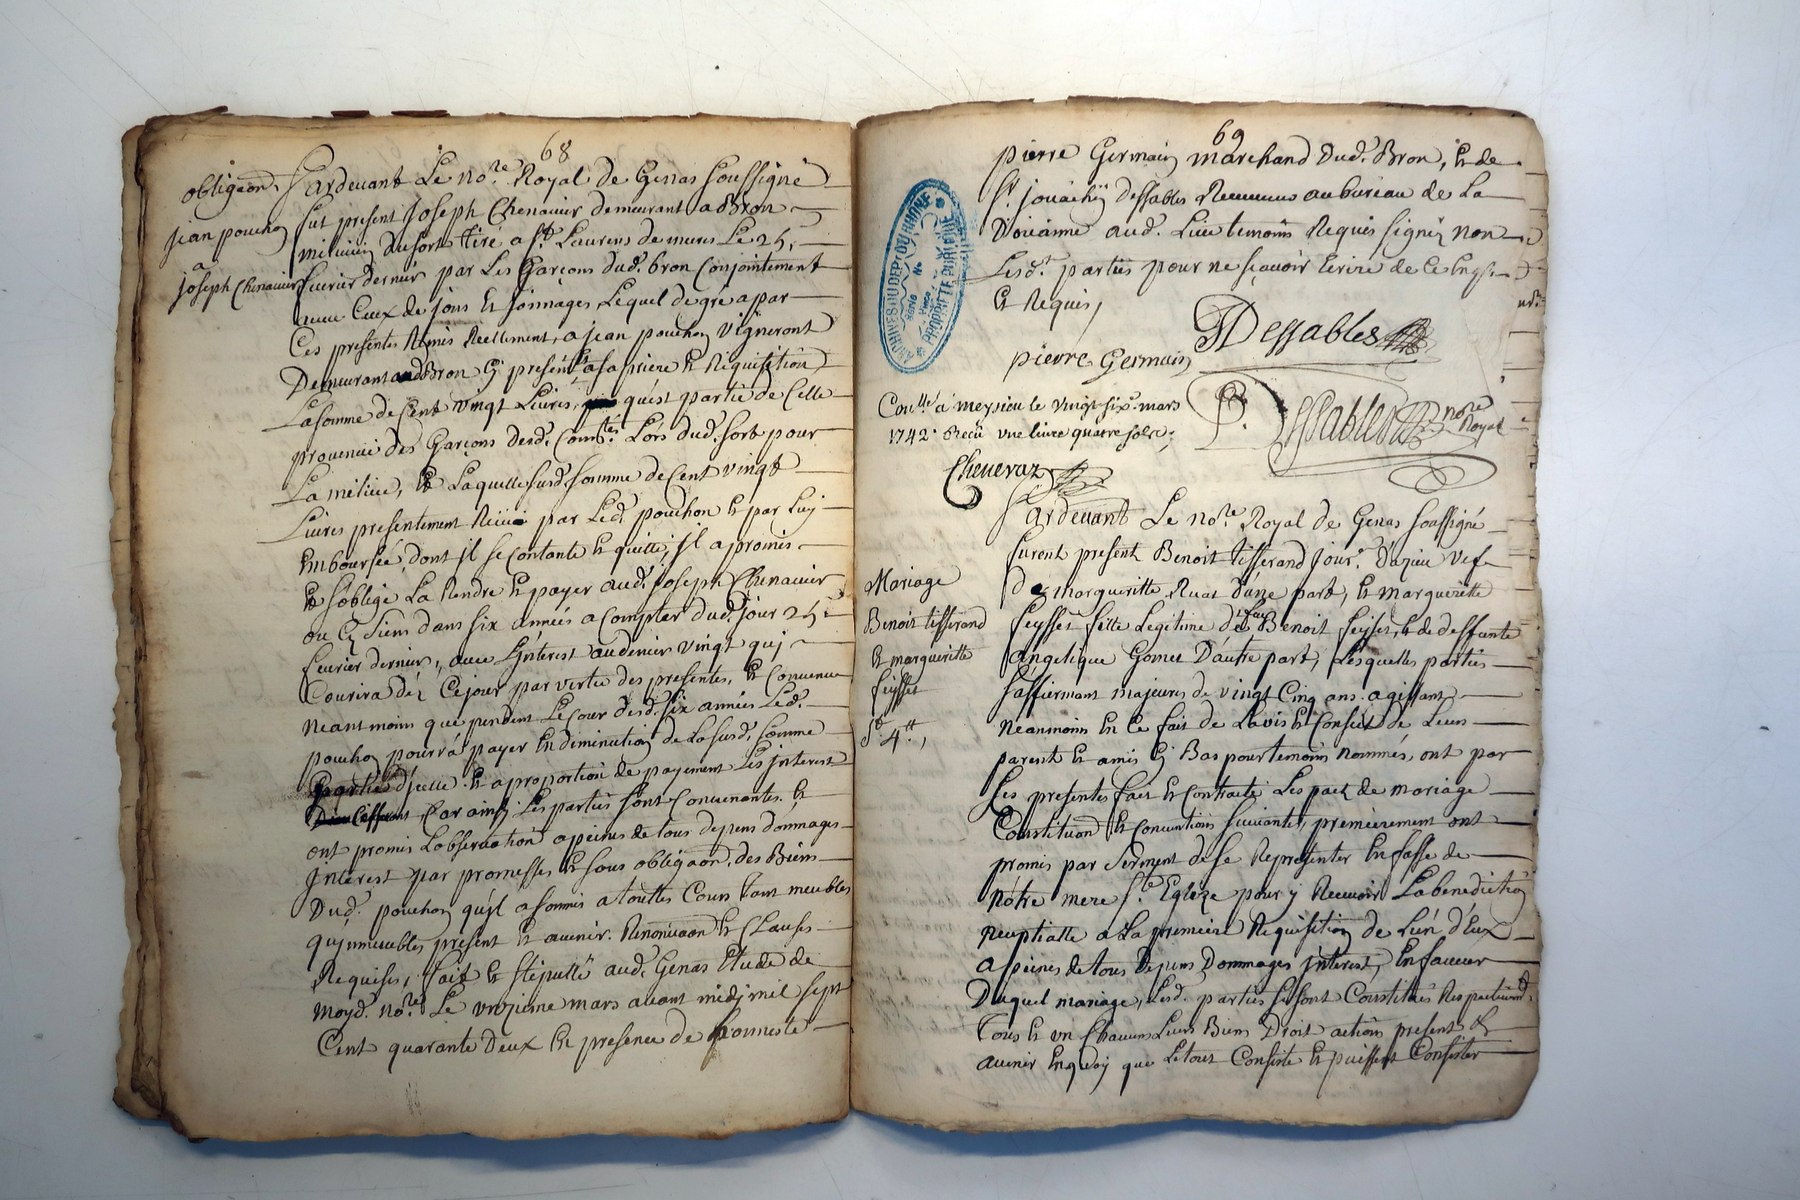 68
obligaõn.
jean pouchon
a
joseph Chenavier
Pardevant Le no.re Royal de Genas soussigné
fut present Joseph Chenavier demeurant a Bron
milicien du sort tiré a St. Laurens de mures Le 25.e
fevrier dernier par Les Garçons dud. bron Conjointement
avec Ceux de jons et jonnages, Lequel de gré a par
Ces presentes Remis Reellement, a jean pouchon vigneront
Demeurant aud Bron Cy present et a sa priere et Requisition
La somme de Cent vingt Livres, qu'est partie de Celle
provenüe des Garçons desd. Com.tes Lors dud. sort pour
La milice, et Laquelle susd. somme de Cent vingt
Livres presentement par Led. pouchon et par Luy
Emboursée, dont jl se Contante et quitte, jl a promis
et s'oblige La Rendre et payer aud. joseph Chenavier
ou Es siens dans six années a Compter dud. jour 25.e
fevrier dernier, avec L'jnterest au denier vingt qui
Courira déz Cejour par vertu des presentes, et Convenu
neantmoins que pendent Le Cour desd. six années Led.
pouchon pourrá payer En diminution de La susd. somme
partie d'jcelle et a proportion de payement Les jnterest
Car ainsy Les parties sont Convenantes et
ont promis L'observation a peines de tous depens dommages
jnterest par promesses et sous obligaõn des Biens
Dud. pouchon qu'jl a soumis a touttes Cours tant meubles
qu'jmmeubles present et avenir. Renonciaõn et Clauses
Requises, fait et stipullé aud. Genas Etude de
moyd. no.re Le unzieme mars avant midj mil sept
Cent quarante deux En presence de honneste
69
pierre Germain marchand dud. Bron, et de
Sr. jouachin dessables Receveur au bureau de La
Doüanne aud. Lieu temoins Requis signés non
Lesd. parties pour ne sçavoir Ecrire de Ce Enq.s
et Requis,
JDessables
pierre Germain
P. Dessables no.re Royal
Con.llé a meysieu le vingt six.e mars
1742. Reçû une livre quatre sols.
Cheneraz
Mariage
Benoit tisserand
et margueritte
feysset
4.tt
Pardevant Le no.re Royal de Genas soussigné
furent present Benoit tisserand jour.r Dazieu vef
de margueritte Ruat d'une part, et margueritte
feysset fille Legitime de feu Benoit feysset, et de deffunte
Angelique Gomet D'autre part, Lesquelles parties
s'affirmant majeures de vingt Cinq ans agissant
Neanmoins En Ce fait de L'avis et Conseil de Leurs
parent et amis Cy Bas pour temoins nommés, ont par
Ces presentes fait et Contracté Les pact de mariage
Constitution et Conventions suivantes, premierement ont
promis par serment de se Representer En fasse de
Nôtre mere Ste. Eglize pour y Recevoir La benediction
Neuptialle a La premiere Requisition de L'un d'Eux
a peines de tous depens Dommages jnterest, En faveur
Duquel mariage, Lesd. parties se sont Constitués Respectivem.t
Tous et un Chacuns Leurs Biens Droit actions present et
avenir En quoy que Le tout Consiste et puissent Consister
ARCHIVES DU DEPT DU RHONE
PROPRIETE PUBLIQUE